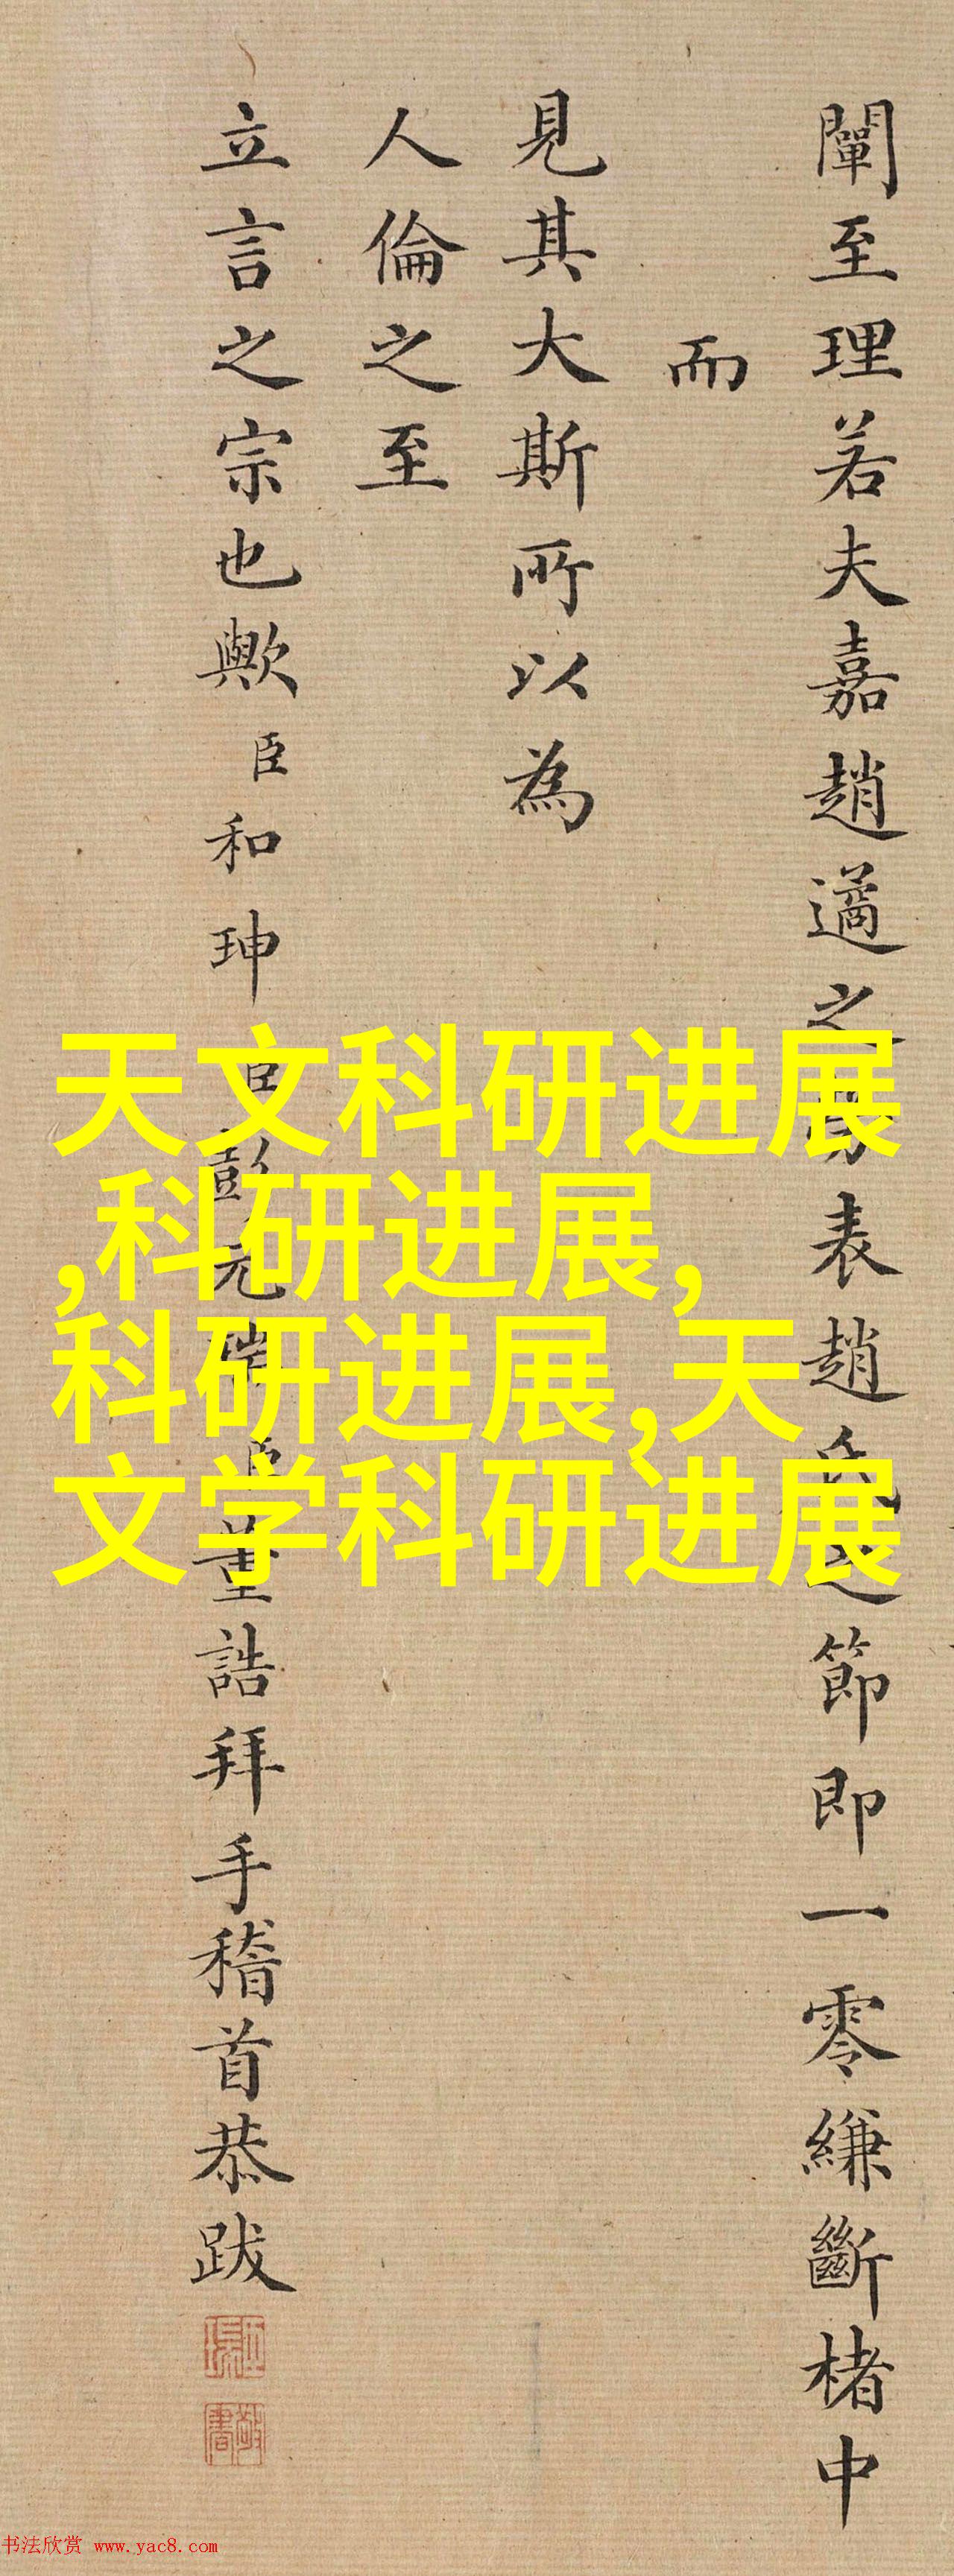 闡至理若夫嘉趙遹之表趙氏之節即一零縑斷楮中
而
見其大斯所以為
人倫之至
立言之宗也歟臣和珅臣彭元瑞臣董誥拜手稽首恭跋
天文科研进展
,科研进展,
科研进展,天
文学科研进展
敬書
书法欣赏 www.yac8.com